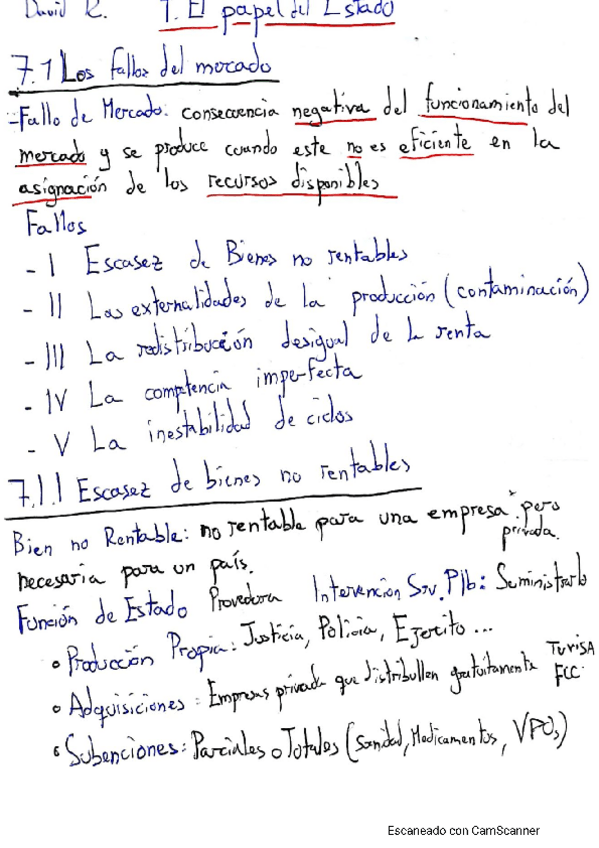 David R. 7. El papel del Estado
7.1 Los fallos del mercado
-Fallo de Mercado: consecuencia negativa del funcionamiento del
mercado y se produce cuando este no es eficiente en la
asignación de los recursos disponibles
Fallos
- I Escasez de Bienes no rentables
- II Las externalidades de la producción (contaminación)
- III La redistribución desigual de la renta
- IV La competencia imperfecta
- V La inestabilidad de ciclos
7.1.1 Escasez de bienes no rentables
Bien no Rentable: no rentable para una empresa privada. pero
necesaria para un país.
Función de Estado Provedora Intervención Srv. Plb: Suministrarlo
• Producción Propia: Justicia, Policia, Ejercito ...
• Adquisiciones: Empresas privada que distribullen gratuitamente TUVISA FCC
• Subenciones: Parciales o Totales (Sanidad, Medicamentos, VPOs)
Escaneado con CamScanner